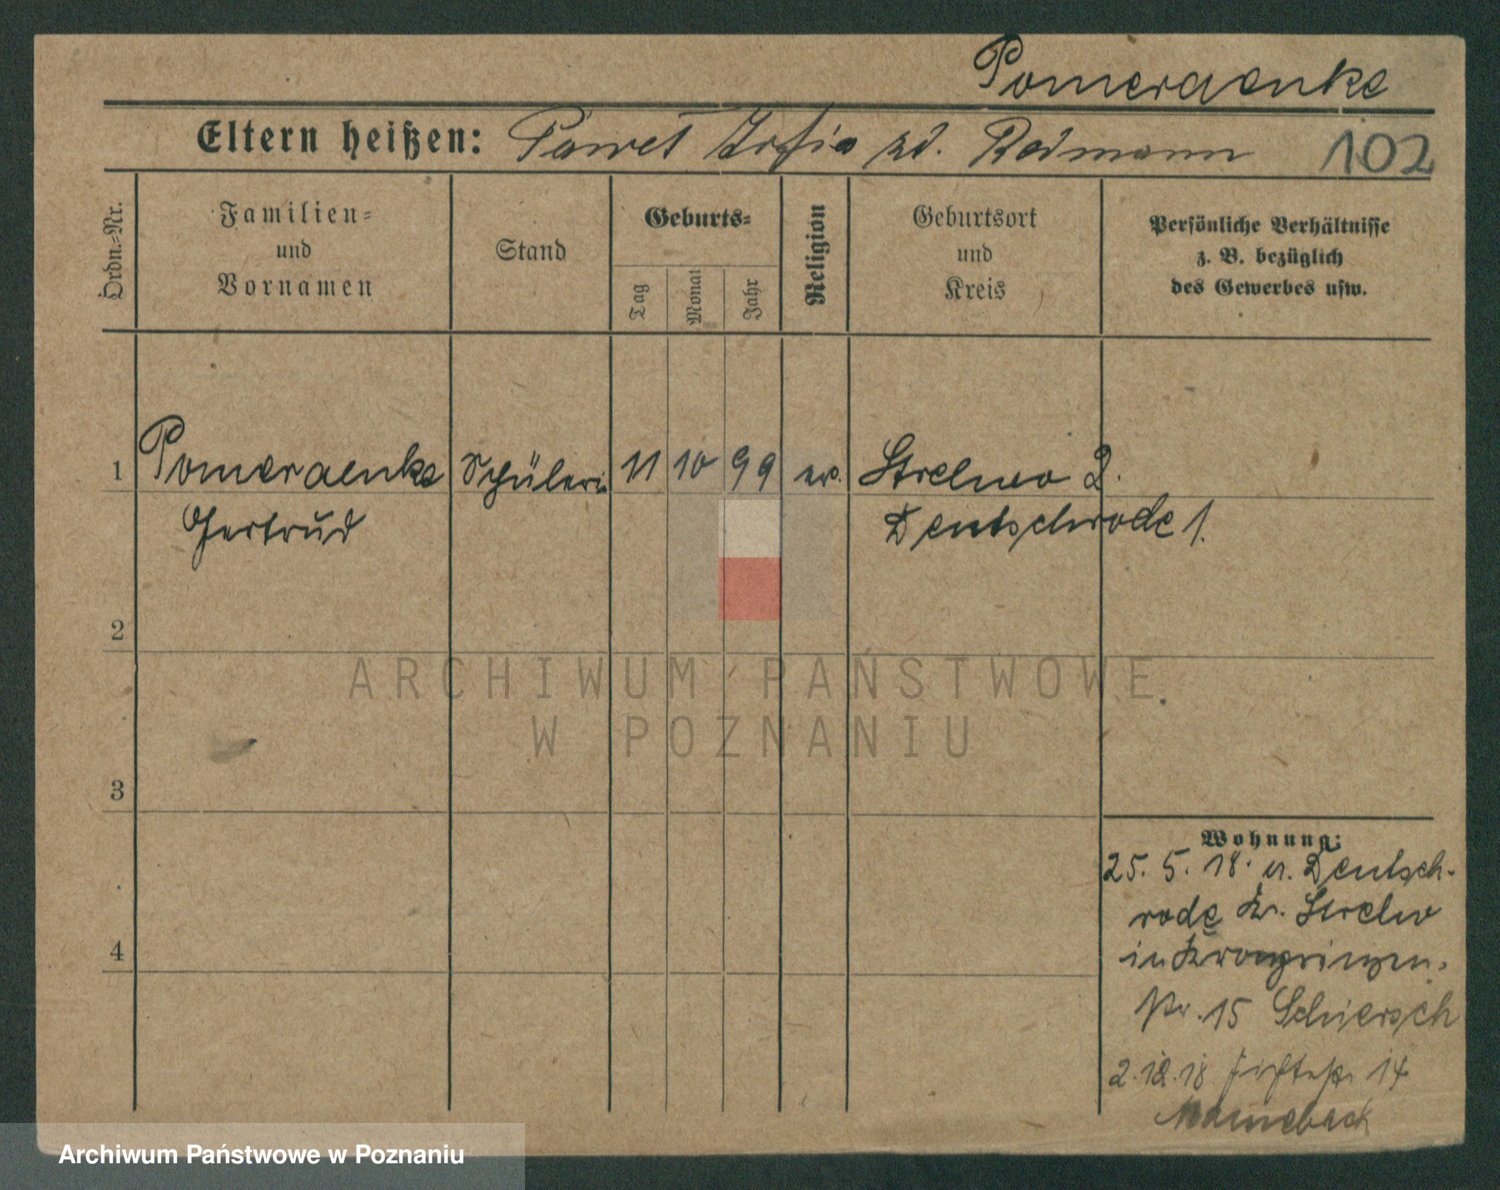 Pomeraenke
Eltern heißen: Paweł Zofia zd. Redmann 102
Ordn.=Nr.
Familien=
und
Vornamen
Stand
Geburts=
Tag
Monat
Jahr
Religion
Geburtsort
und
Kreis
Persönliche Verhältnisse
z. B. bezüglich
des Gewerbes usw.
1 Pomeraenke Schülerin 11 10 99 ev. Strelno
Gertrud Deutschrode
2
3
4
Wohnung:
25. 5. 18. v. Deutsch-
rode Kr. Strelno
in Kronprinzen-
str. 15 Schiersch
2.12.18 14
ARCHIWUM PAŃSTWOWE
W POZNANIU
Archiwum Państwowe w Poznaniu